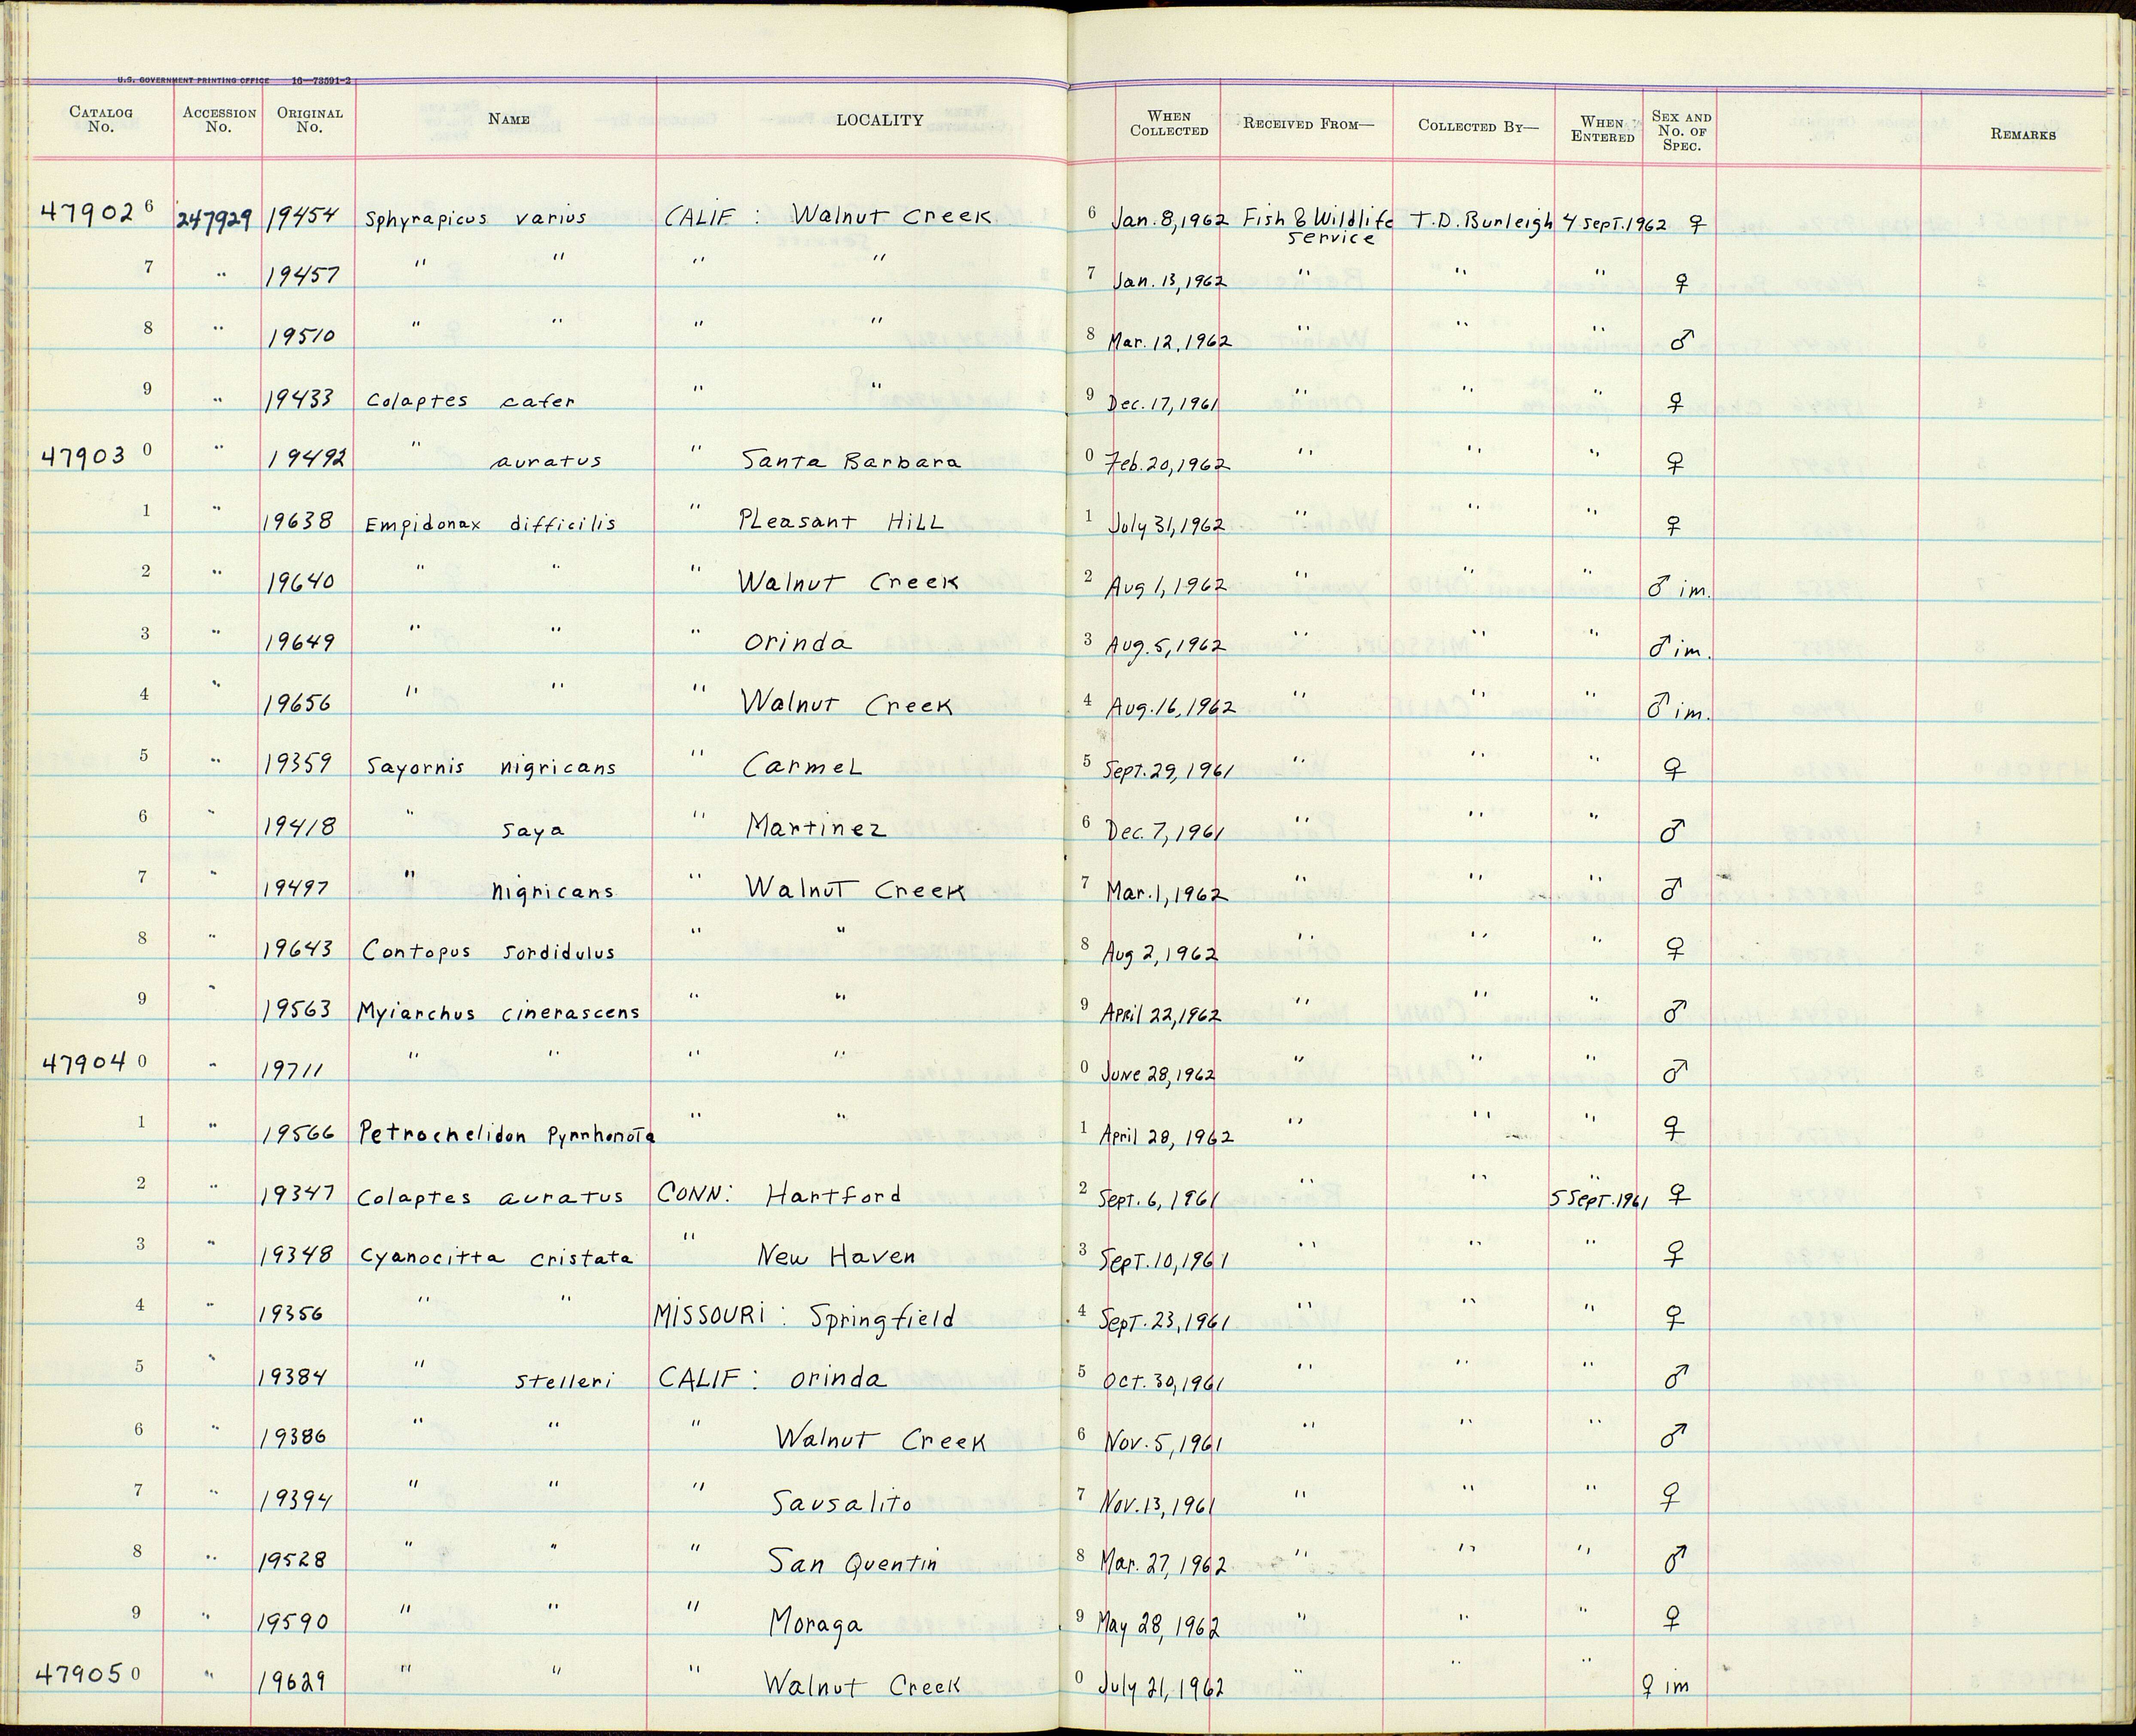 U.S. GOVERNMENT PRINTING OFFICE 16—73591-2
CATALOG No. ACCESSION No. ORIGINAL No. NAME LOCALITY WHEN COLLECTED RECEIVED FROM— COLLECTED BY— WHEN ENTERED SEX AND No. OF SPEC. REMARKS
47902 6 247929 19454 Sphyrapicus varius CALIF : Walnut Creek 6 Jan. 8, 1962 Fish & Wildlife Service T.D. Burleigh 4 Sept. 1962 ♀
7 " 19457 " " " " 7 Jan. 13, 1962 " " " ♀
8 " 19510 " " " " 8 Mar. 12, 1962 " " " ♂
9 " 19433 Colaptes cafer " " 9 Dec. 17, 1961 " " " ♀
47903 0 " 19492 " auratus " Santa Barbara 0 Feb. 20, 1962 " " " ♀
1 " 19638 Empidonax difficilis " Pleasant Hill 1 July 31, 1962 " " " ♀
2 " 19640 " " " Walnut Creek 2 Aug 1, 1962 " " " ♂ im.
3 " 19649 " " " Orinda 3 Aug. 5, 1962 " " " ♂ im.
4 " 19656 " " " Walnut Creek 4 Aug. 16, 1962 " " " ♂ im.
5 " 19359 Sayornis nigricans " Carmel 5 Sept. 29, 1961 " " " ♀
6 " 19418 " saya " Martinez 6 Dec. 7, 1961 " " " ♂
7 " 19497 " nigricans " Walnut Creek 7 Mar. 1, 1962 " " " ♂
8 " 19643 Contopus sordidulus " " 8 Aug 2, 1962 " " " ♀
9 " 19563 Myiarchus cinerascens " " 9 April 22, 1962 " " " ♂
47904 0 " 19711 " " " " 0 June 28, 1962 " " " ♂
1 " 19566 Petrochelidon pyrrhonota " " 1 April 28, 1962 " " " ♀
2 " 19347 Colaptes auratus CONN: Hartford 2 Sept. 6, 1961 " " " 5 Sept. 1961 ♀
3 " 19348 Cyanocitta cristata " New Haven 3 Sept. 10, 1961 " " " ♀
4 " 19356 " " MISSOURI : Springfield 4 Sept. 23, 1961 " " " ♀
5 " 19384 " stelleri CALIF : Orinda 5 Oct. 30, 1961 " " " ♂
6 " 19386 " " " Walnut Creek 6 Nov. 5, 1961 " " " ♂
7 " 19394 " " " Sausalito 7 Nov. 13, 1961 " " " ♀
8 " 19528 " " " San Quentin 8 Mar. 27, 1962 " " " ♂
9 " 19590 " " " Moraga 9 May 28, 1962 " " " ♀
47905 0 " 19629 " " " Walnut Creek 0 July 21, 1962 " " " ♀ im